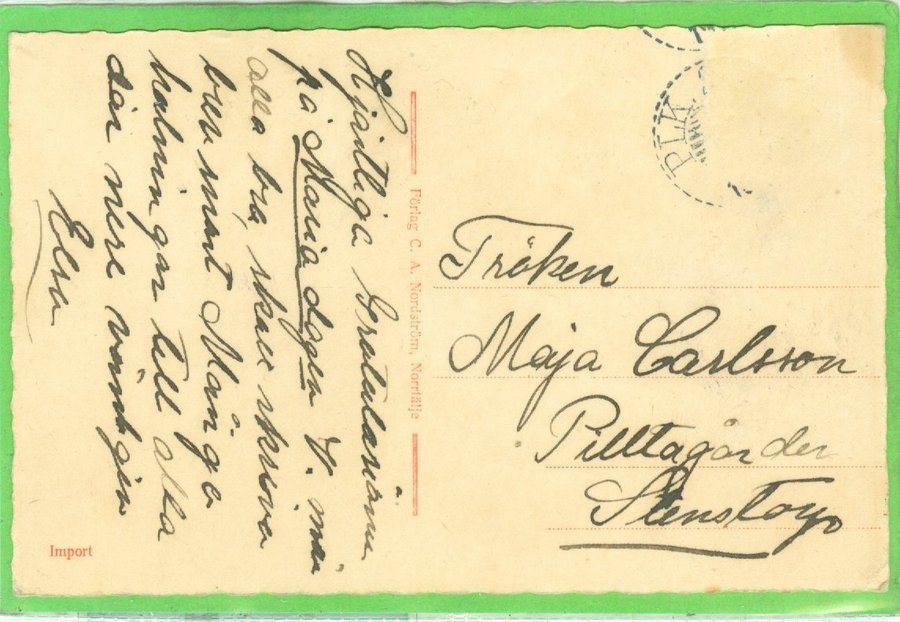 Hjärtliga Gratulationer
på Maria dagen V. mår
alla bra, skall skriva
brev snart Många
hälsningar till alla
där nere vänligen
Elsa
Förlag C. A. Nordström, Norrtälje
PLK
Fröken
Maja Carlsson
Stenstorp
Import